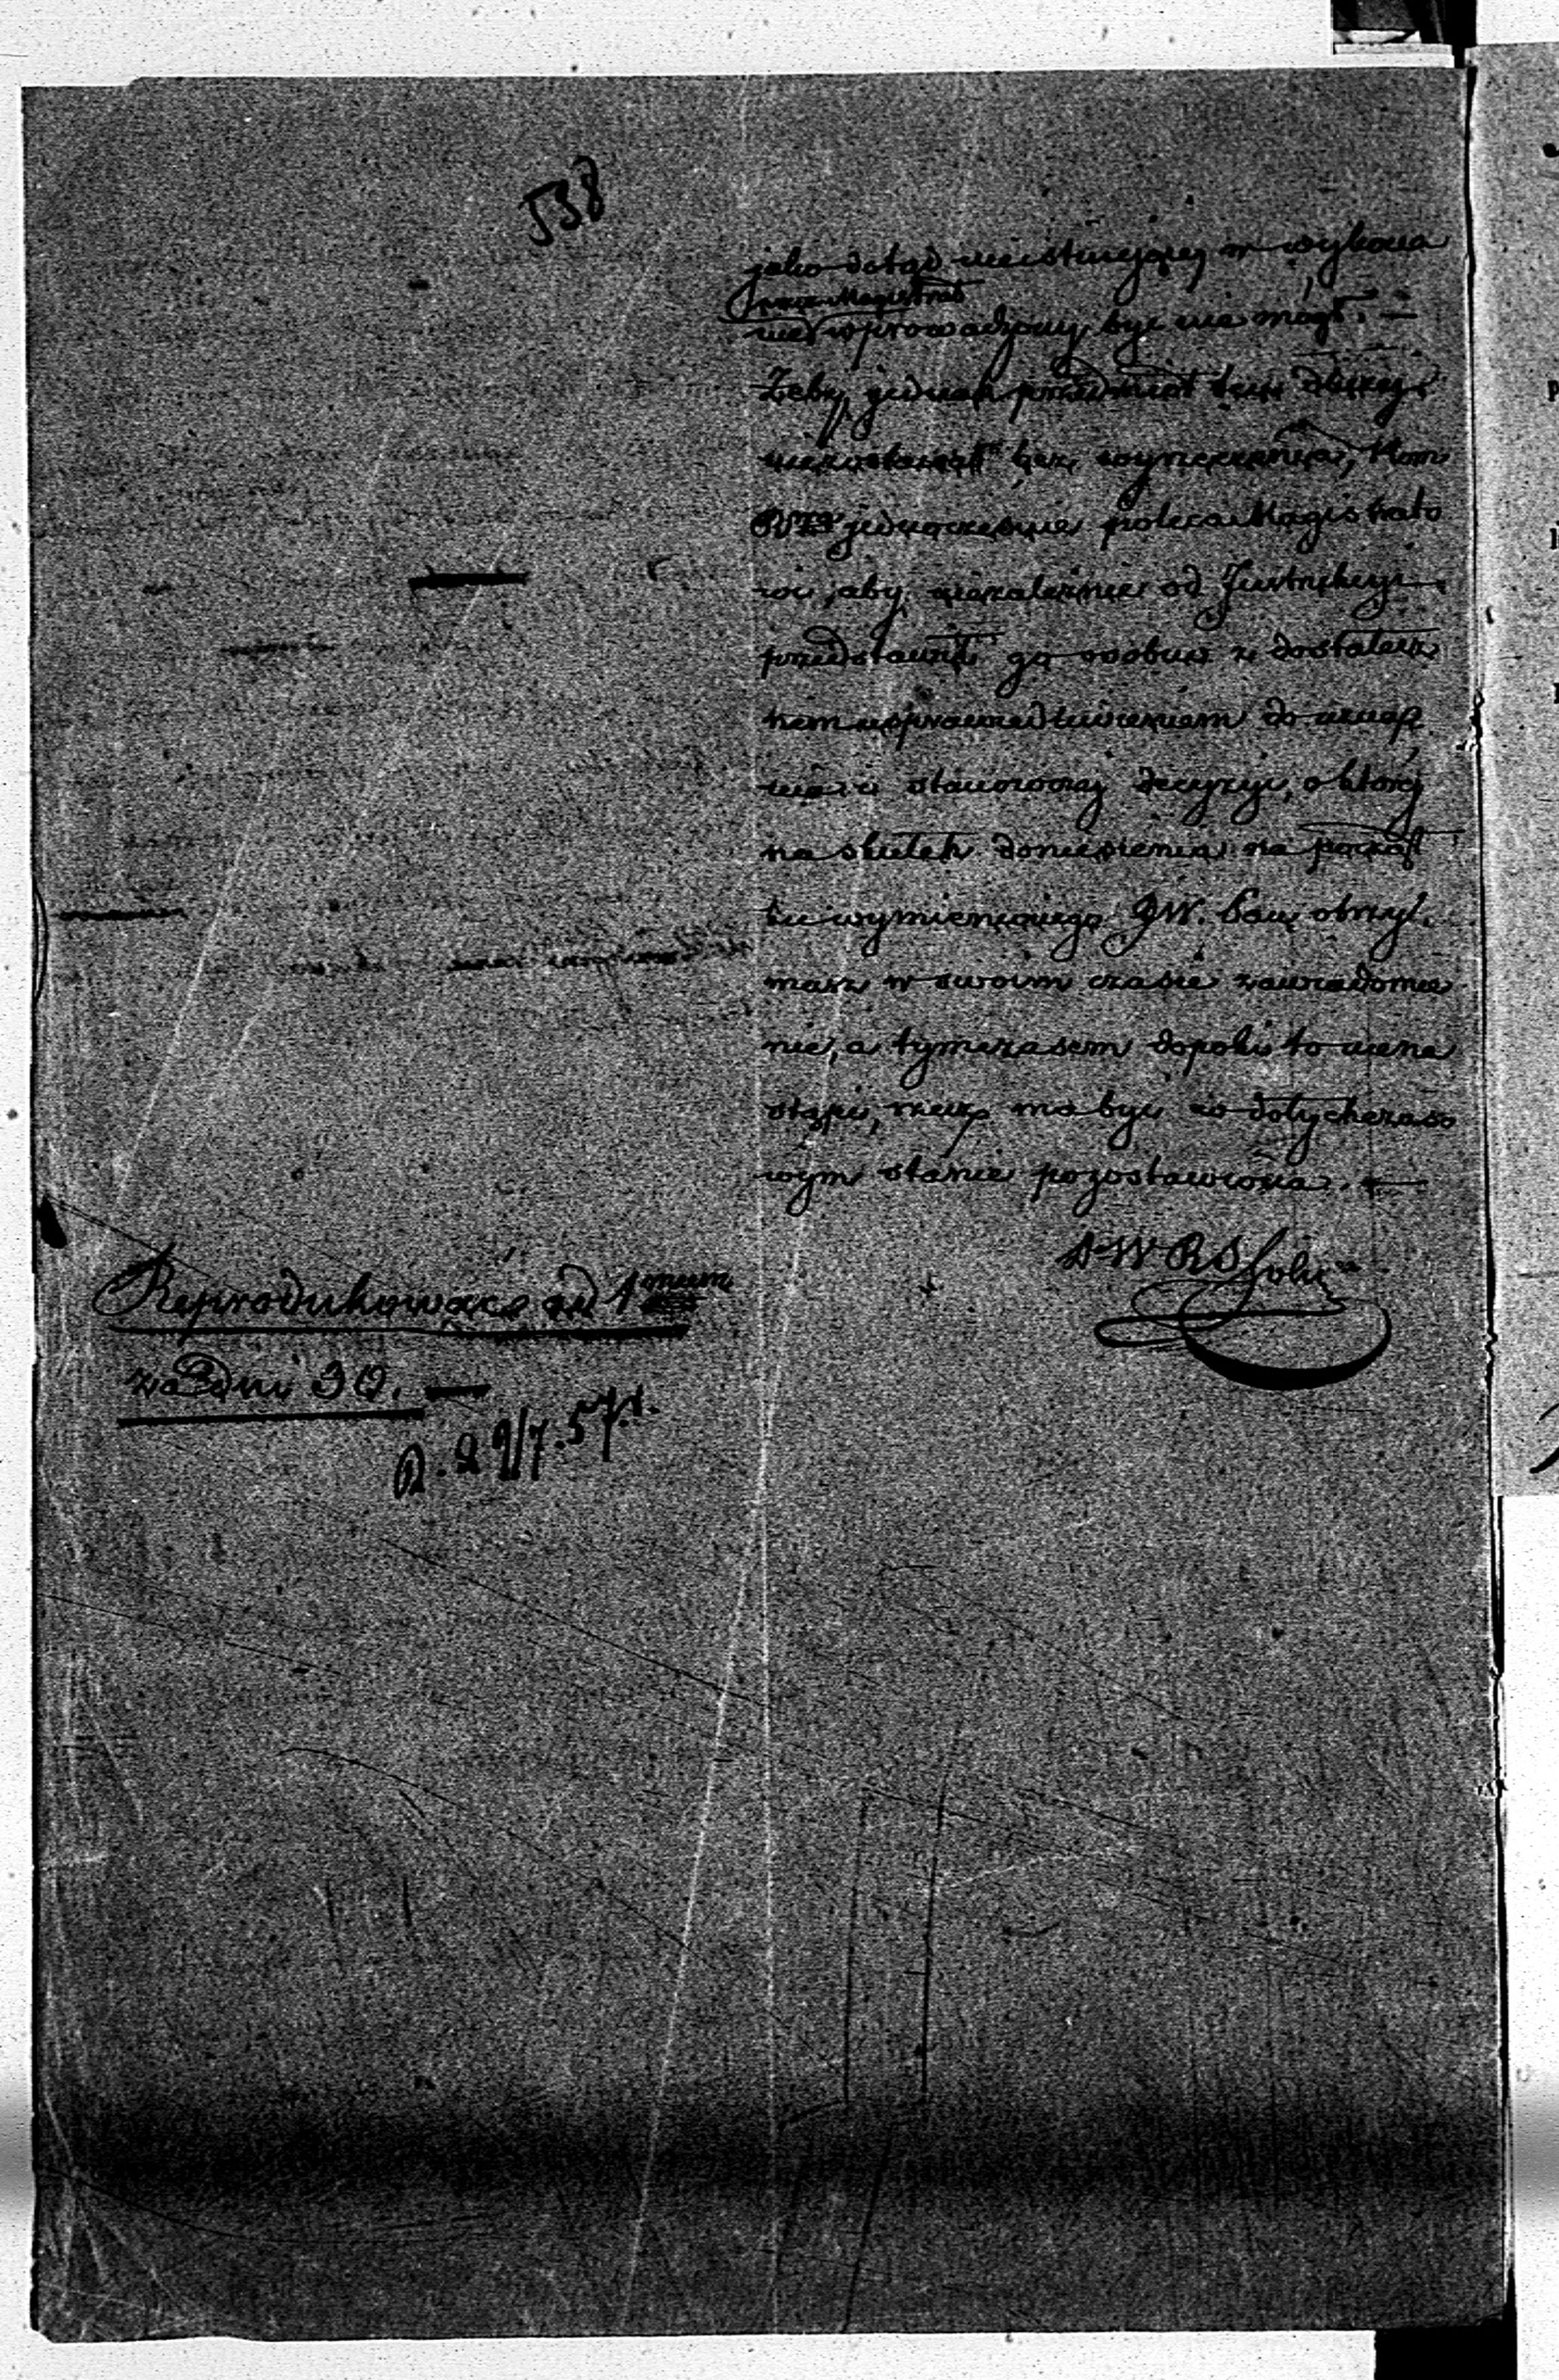 538
jako dotąd nieistniejącej w wykona
przez Magistrat
nie wprowadzony być nie mógł. —
Żeby jednak przedmiot ten dłużej
niezostawał bez wyrzeczenia, Kom
jednocześnie poleca Magistrato
wi, aby niezależnie od
przedstawił go osobno z dostatecz
nem usprawiedliwieniem do
i stanowczej decyzyi, o której
na skutek doniesienia na począt
ku wymienionego JW. Pan otrzy
masz w swoim czasie zawiadomie
nie, a tymczasem dopoki to niena
stąpi, rzecz ma być w dotychczaso
wym stanie pozostawiona. —
Reprodukować ad 1mum
za dni 30. —
R. 29/7. 57. r.